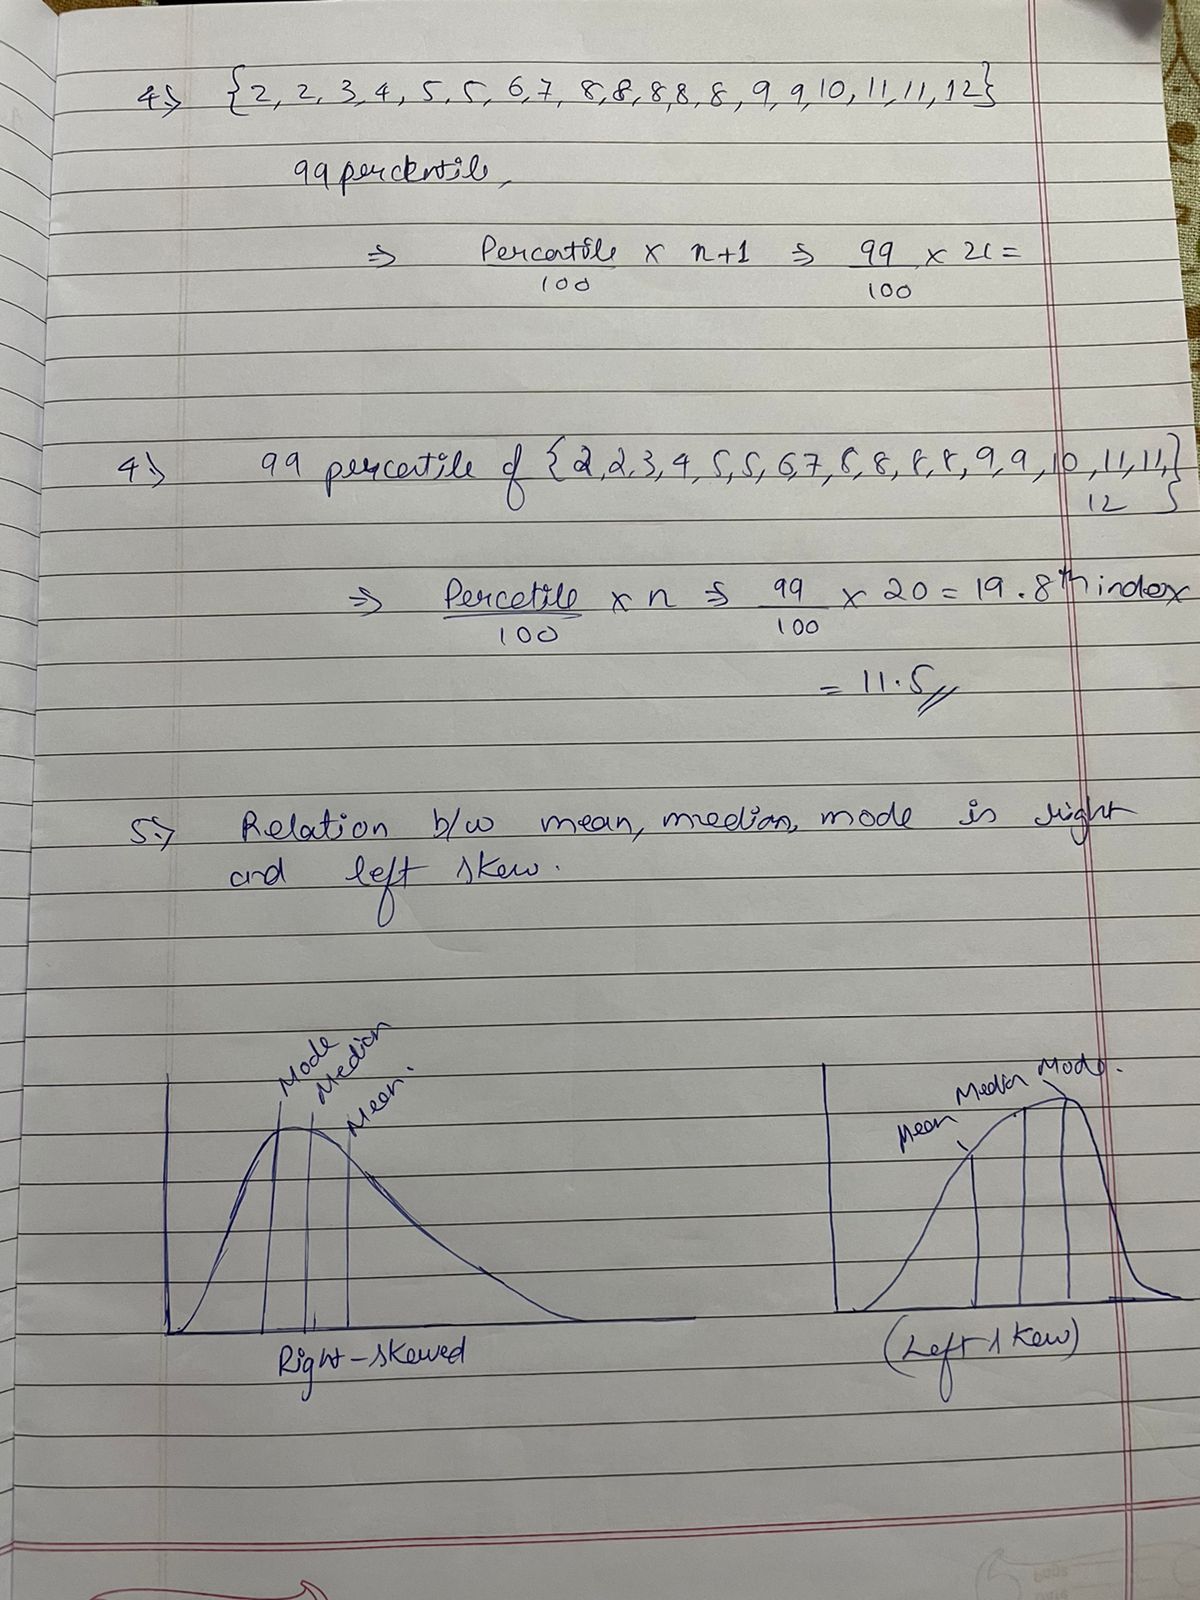 4⇒ {2, 2, 3, 4, 5, 5, 6, 7, 8, 8, 8, 8, 8, 9, 9, 10, 11, 11, 12}
99 percentile,
⇒ Percentile/100 × n+1 ⇒ 99/100 × 21 =
4⇒ 99 percentile of {2, 2, 3, 4, 5, 5, 6, 7, 8, 8, 8, 8, 9, 9, 10, 11, 11,
12}
⇒ Percetile/100 × n ⇒ 99/100 × 20 = 19.8th index
= 11.5
5⇒ Relation b/w mean, median, mode in right
and left skew.
Mode
Median
Mean.
Right-skewed
Mean
Median
Mode.
(Left skew)